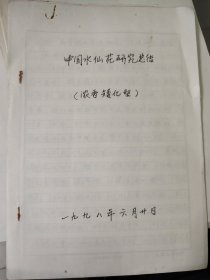 中国水仙花研究总结
（浓香矮化型）
一九九八年六月廿日